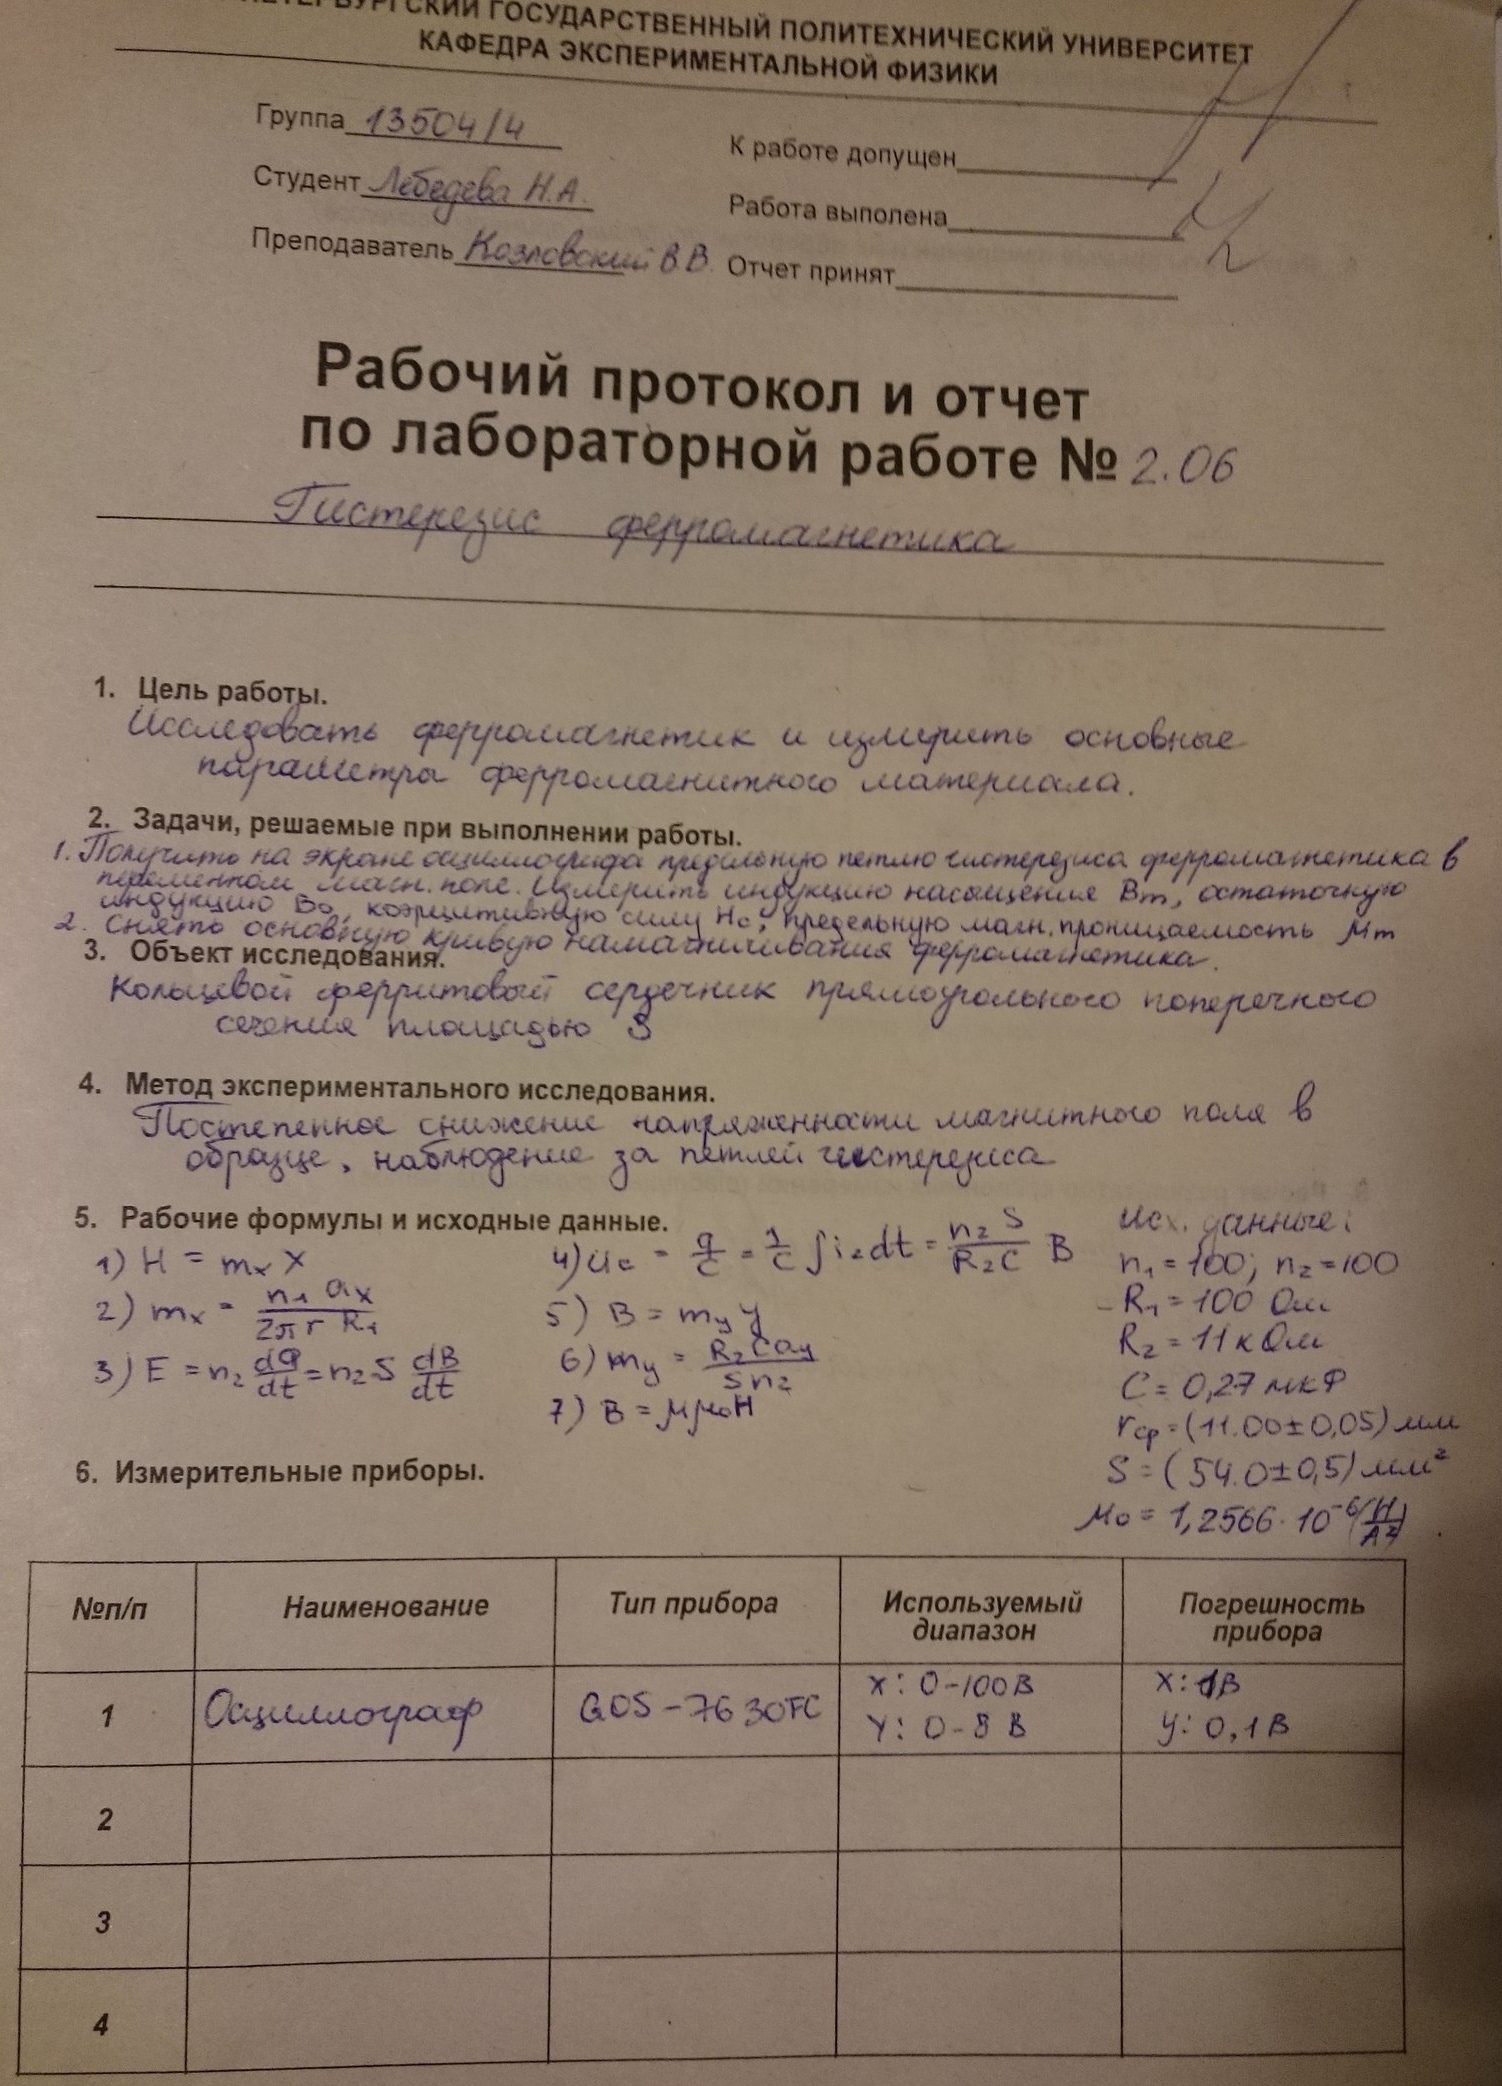 ПЕТЕРБУРГСКИЙ ГОСУДАРСТВЕННЫЙ ПОЛИТЕХНИЧЕСКИЙ УНИВЕРСИТЕТ
КАФЕДРА ЭКСПЕРИМЕНТАЛЬНОЙ ФИЗИКИ
Группа 13504/4
К работе допущен
Студент Лебедева Н.А.
Работа выполена
Преподаватель Козловский В.В.
Отчет принят
Рабочий протокол и отчет
по лабораторной работе № 2.06
Гистерезис ферромагнетика
1. Цель работы.
Исследовать ферромагнетик и измерить основные
параметры ферромагнитного материала.
2. Задачи, решаемые при выполнении работы.
1. Получить на экране осциллографа предельную петлю гистерезиса ферромагнетика в
переменном магн. поле. Измерить индукцию насыщения Bm, остаточную
индукцию B0, коэрцитивную силу Hc, предельную магн. проницаемость μm
2. Снять основную кривую намагничивания ферромагнетика.
3. Объект исследования.
Кольцевой ферритовый сердечник прямоугольного поперечного
сечения площадью S
4. Метод экспериментального исследования.
Постепенное снижение напряженности магнитного поля в
образце, наблюдение за петлей гистерезиса
5. Рабочие формулы и исходные данные.
1) H = mx X
2) mx = n1 ax / 2πr R1
3) E = n2 dФ/dt = n2 S dB/dt
4) Uc = q/C = 1/C ∫i2dt = n2 S / R2C B
5) B = my y
6) my = R2 C ay / S n2
7) B = μμ0H
Исх. данные:
n1 = 100; n2 = 100
R1 = 100 Ом
R2 = 11 кОм
C = 0,27 мкФ
rср = (11.00±0,05) мм
S = (54.0±0,5) мм²
μ0 = 1,2566·10⁻⁶ (Н/А²)
6. Измерительные приборы.
№п/п Наименование Тип прибора Используемый диапазон Погрешность прибора
1 Осциллограф GOS-7630FC X: 0-100 В Y: 0-8 В X: 1В y: 0,1 В
2
3
4